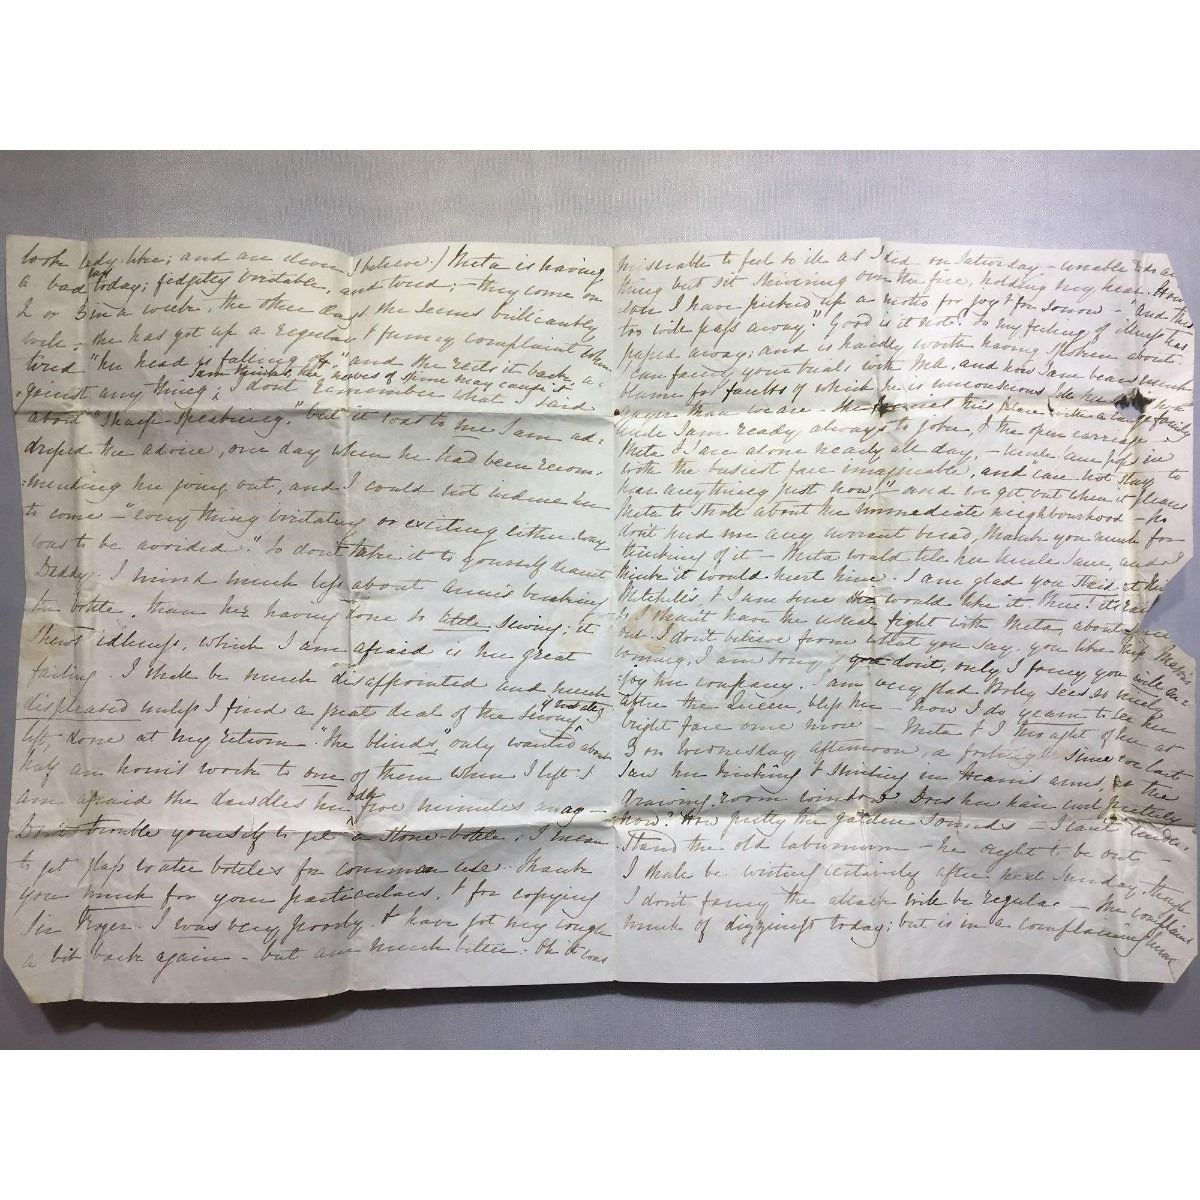 look lady-like; and are clever I believe.) Meta is having
a bad day today; fidgetty irritable, and tired; - they come on
2 or 3 in a week. The other days she seems brilliantly
well - she has got up a regular & funny complaint when
tired "her head is falling off" and she rests it back a-
I am afraid the nerves of the spine may cause it
gainst any thing, I don't remember what I said
about "sharp speaking," but it was to me I am ad-
dressed the advice, one day when he had been recom-
mending her going out, and I could not induce her
to come - "every thing irritating or exciting either way
was to be avoided." So don't take it to yourself dearest
Daddy. I mind much less about Annie's breaking
the bottle, than her having done so little sewing; it
shews idleness, which I am afraid is her great
failing. I shall be much disappointed and much
displeased unless I find a great deal of the sewing I
left, done at my return. "The blinds" only wanted about
half an hour's work to one of them when I left. I
am afraid she dawdles her odd five minutes away -
Don't trouble yourself to get a stone-bottle; I mean
to get glass water bottles for common use. Thank
you much for your particulars, & for copying
Sir Roger. I was very poorly & have got my cough
a bit back again - but am much better: Oh it was
miserable to feel so ill as I did on Saturday - unable to do any
thing but sit shivering over the fire, holding my head. How-
ever I have picked up a motto for joy & for sorrow - "And this
too will pass away." Good is it not? So my feeling of illness has
passed away; and is hardly worth having spoken about.
I can fancy your trials with MA, and how I am
blame for faults of which he is unconscious
than we are - the
while I am ready always to jobn, & the open carriage -
Meta & I are alone nearly all day, - Uncle Sam pops in
with the busiest face imaginable, and "can not stay
for anything just now" - and we get out when it pleases
Meta to stroll about the immediate neighbourhood - So
don't send me any currant bread, thank you much for
thinking of it - Meta would tell her Uncle Sam, and I
think it would hurt him. I am glad you staid at the
& I am sure would like it.
I shan't have the usual fight with Meta, about
but I don't believe from what you say, you like this
I am sorry you don't, only I fancy you will en-
joy his company. I am very glad Boley sees so nicely
after the Queen, bless her - how I do yearn to see her
bright face once more. Meta & I thought of her at
3 on Wednesday afternoon, a fortnight since we last
saw her kicking & shouting in Hearn's arms, at the
drawing-room window. Does her hair curl prettily
now? How pretty the garden sounds - I can't under-
stand the old laburnum - he ought to be out -
I shall be writing certainly after next Sunday, though
I don't fancy the attack will be regular - She complains
much of dizziness today; but is in a complaining humour